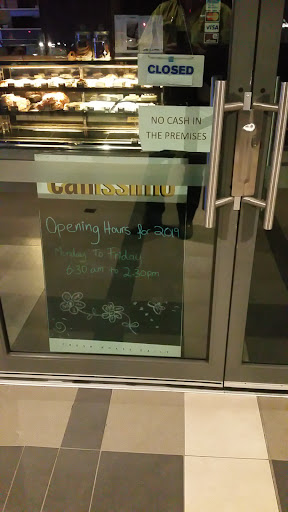 VISA
CLOSED
NO CASH IN
THE PREMISES
Opening Hours for 2019
Monday To Friday
6:30 am to 2:30pm